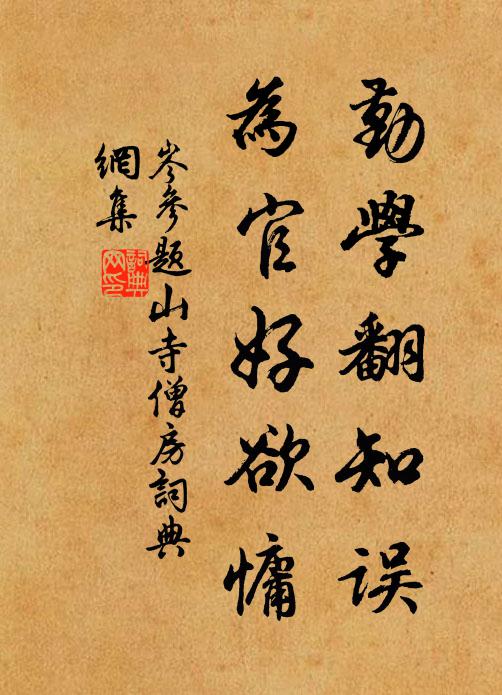 勤學翻知误
為官好欲慵
岑參題山寺僧房詞典
網集
詞典網印